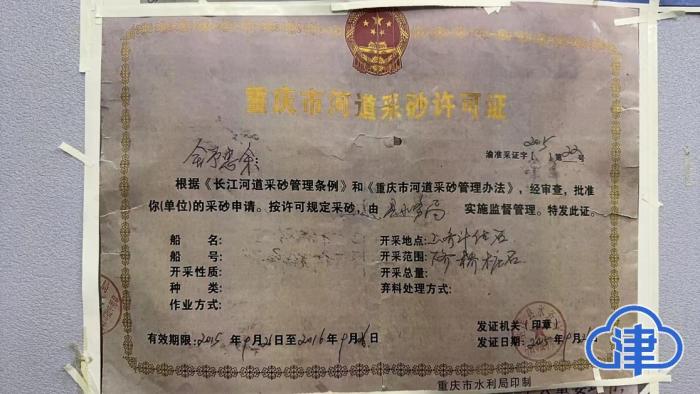 重庆市河道采砂许可证
2015
渝准采证字〔 〕第22号
根据《长江河道采砂管理条例》和《重庆市河道采砂管理办法》，经审查，批准
你(单位)的采砂申请。按许可规定采砂，由 县水务局 实施监督管理。特发此证。
船 名： 开采地点：
船 号： 开采范围：
开采性质： 开采总量：
种 类： 弃料处理方式：
作业方式：
发证机关（印章）
有效期限：2015 年9月21日至2016年9月 日 发证日期：2015年9月2
重庆市水利局印制
津